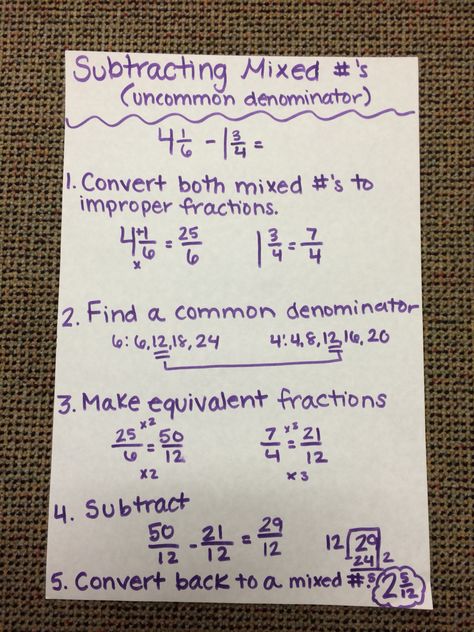 Subtracting Mixed #'s
(uncommon denominator)
4 1/6 - 1 3/4 =
1. Convert both mixed #'s to
improper fractions.
4 +1/6 = 25/6   1 3/4 = 7/4
x
2. Find a common denominator
6: 6, 12, 18, 24   4: 4, 8, 12, 16, 20
3. Make equivalent fractions
25/6 = 50/12   7/4 = 21/12
x2   x3
x2   x3
4. Subtract
50/12 - 21/12 = 29/12   12 29
24 2
5. Convert back to a mixed #. 2 5/12